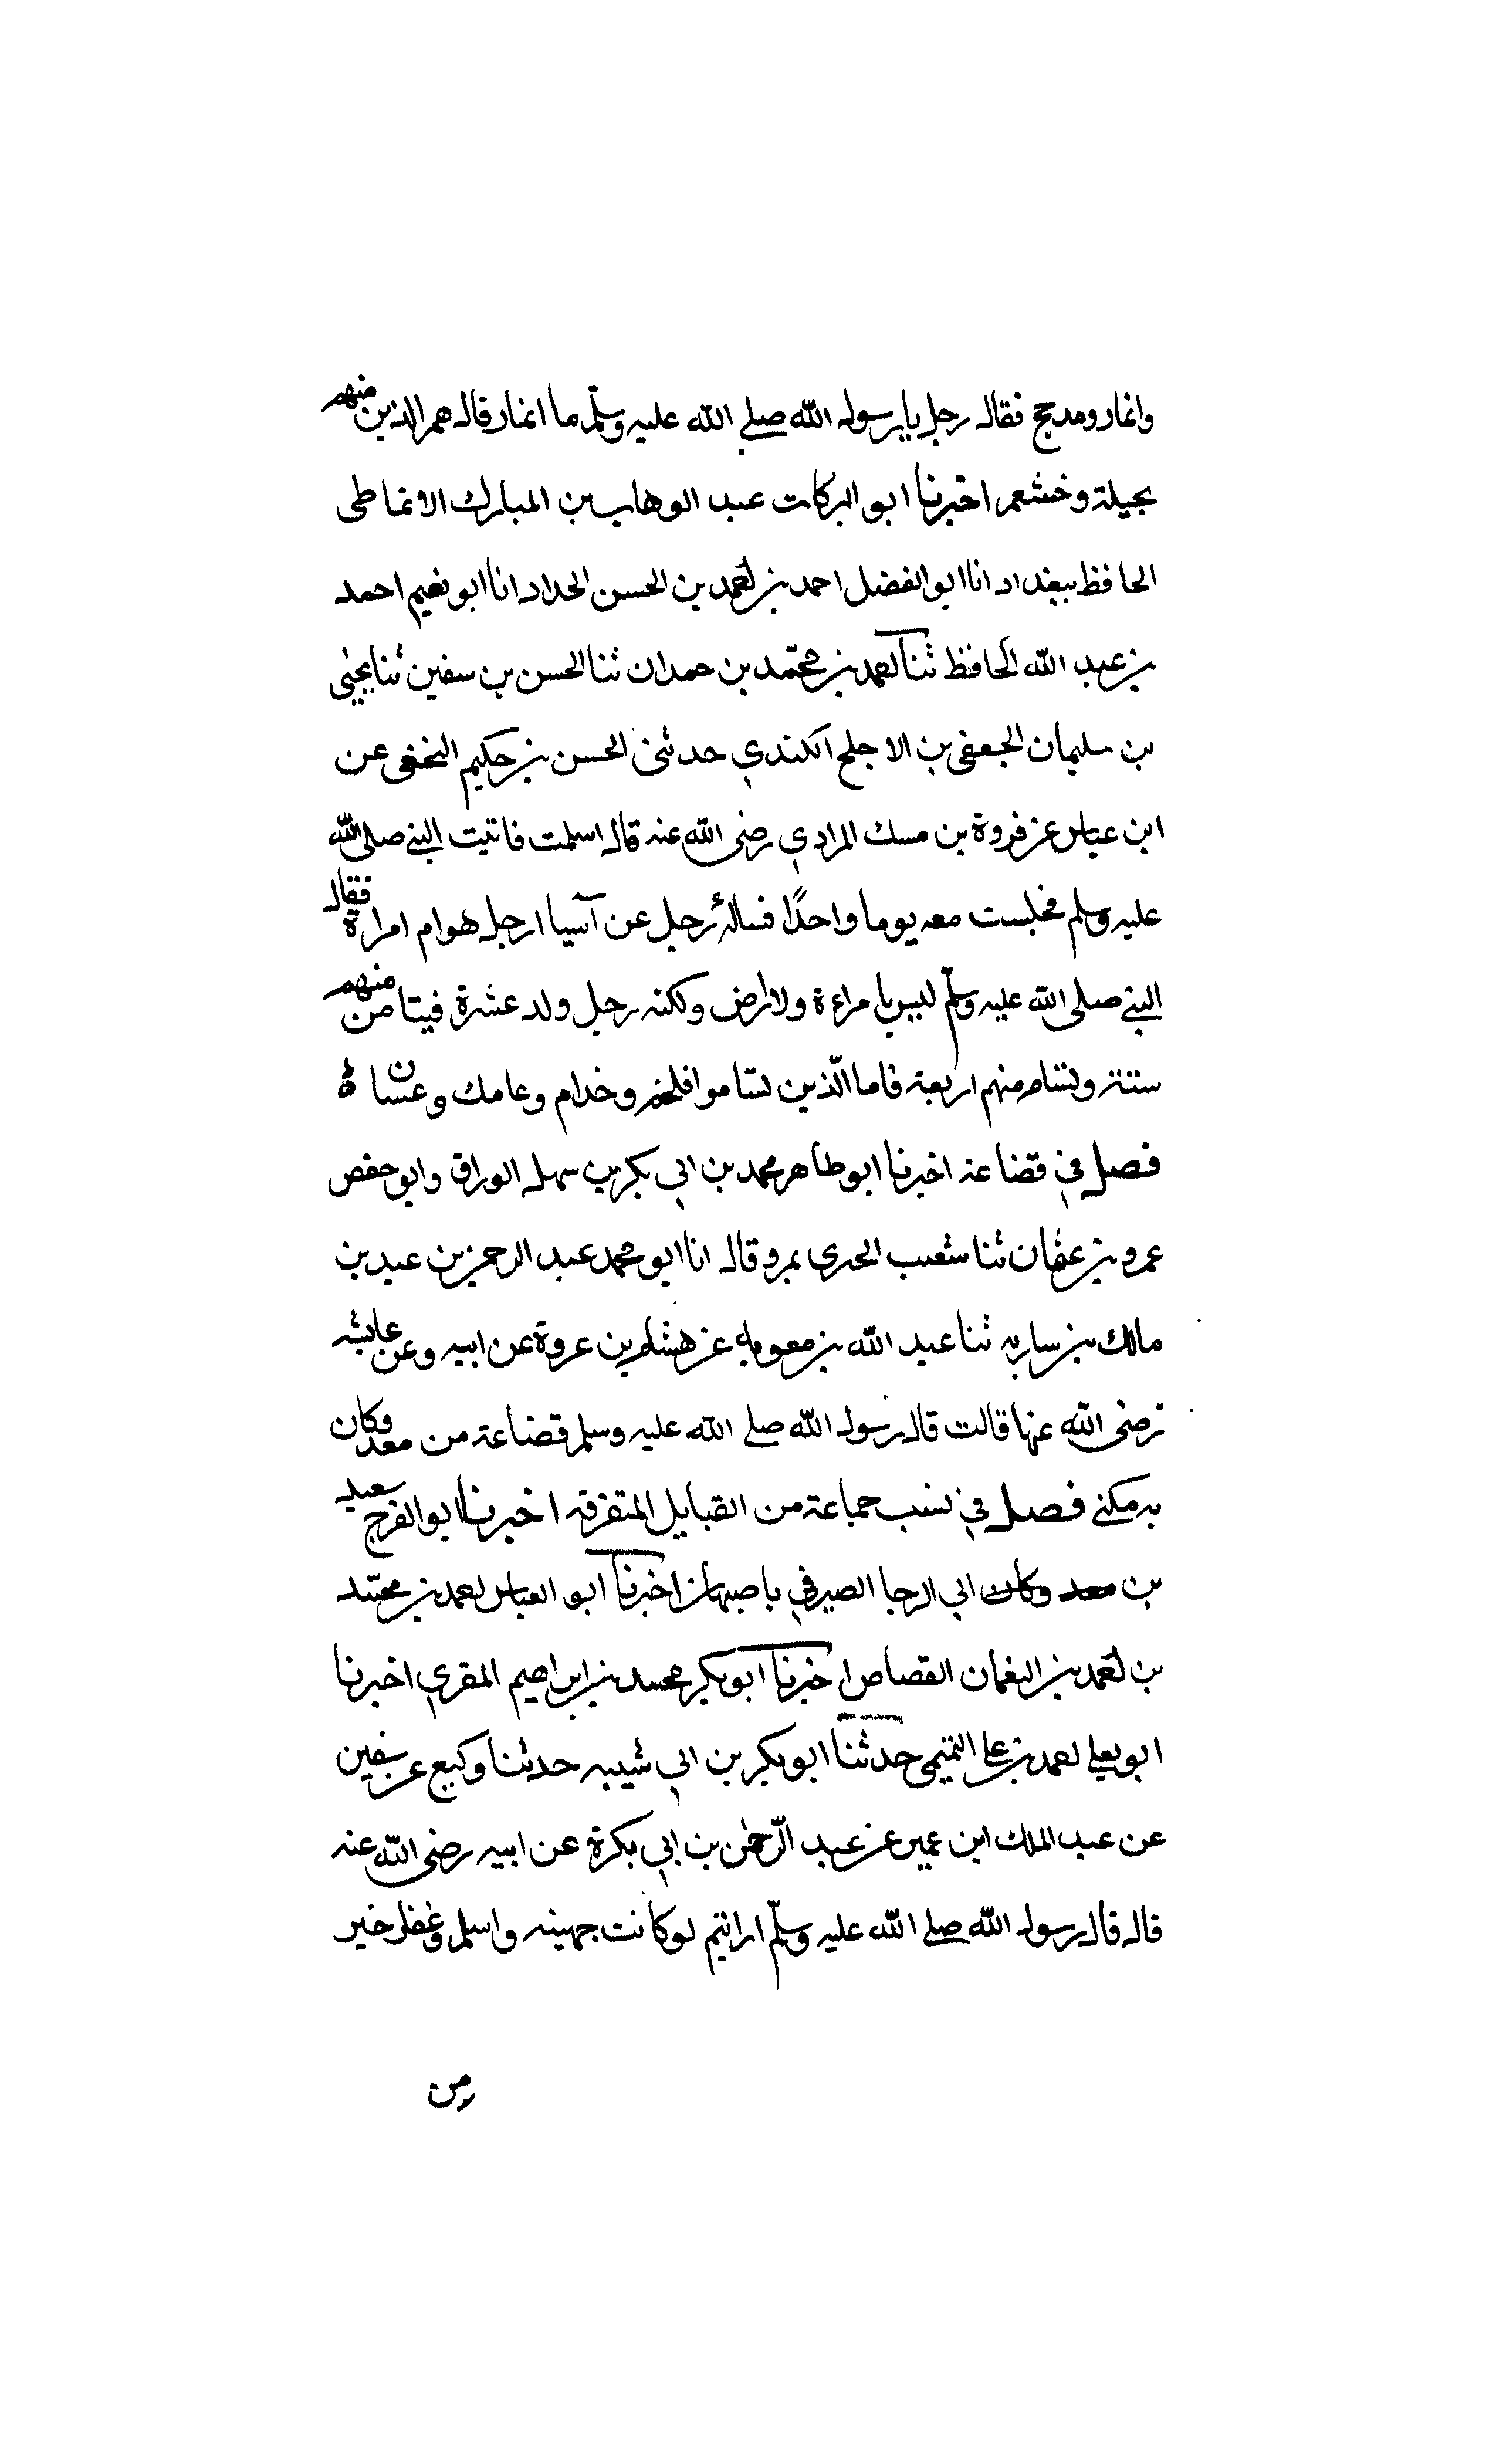 وانمار ومدجج فقال رجل يا رسول الله صلى الله عليه وسلم ما انمار قال هم الذين منهم
بجيلة وخشعم اخبرنا ابو البركات عبد الوهاب بن المبارك الانماطى
الحافظ ببغداد انا ابو الفضل احمد بن احمد بن الحسن الحداد انا ابو نعيم احمد
بن عبد الله الحافظ ثنا احمد بن محمد بن حمدان ثنا الحسن بن سفين ثنا يحيى
بن سليمان الجعفى بن الاجلح الكندي حدثنى الحسن بن حكيم النخعى عن
ابن عباس عن فروة بن مسك المرادي رضى الله عنه قال اسلمت فاتيت النبي صلى الله
عليه وسلم فجلست معه يوما واحدًا فساله رجل عن آسيا ارجل هو ام امراة فقال
النبي صلى الله عليه وسلم ليس بامراءة ولا ارض ولكنه رجل ولد عشرة فيتامن منهم
ستته وتشام منهم اربعة فاما الذين تشاموا فلخم وخدام وعامك وغسان
فصل في قضاعة اخبرنا ابو طاهر محمد بن ابي بكر بن سهل الوراق وابو حفص
عمرو بن عثمان ثنا شعيب الحرى بمرو قال انا ابو محمد عبد الرحمن بن عبيد بن
مالك بن ساريه ثنا عبد الله بن معويه عن هشام بن عروة عن ابيه وعن عايشه
رضى الله عنها قالت قال رسول الله صلى الله عليه وسلم قضاعة من معد وكان
به مكنى فصل في نسب جماعة من القبايل المتفرقه اخبرنا ابو الفرج سعيد
بن معد وكان ابي الرجا الصيرفي باصبهان اخبرنا ابو العباس احمد بن محمد
بن احمد بن النعمان القصاص اخبرنا ابو بكر محمد بن ابراهيم المقري اخبرنا
ابو يعلى احمد بن على التميمى حدثنا ابو بكر بن ابي شيبه حدثنا وكيع عن سفين
عن عبد الملك ابن عمير عن عبد الرحمن بن ابي بكرة عن ابيه رضى الله عنه
قال قال رسول الله صلى الله عليه وسلم ارايتم لو كانت جهينه واسلم وغفار خير
من